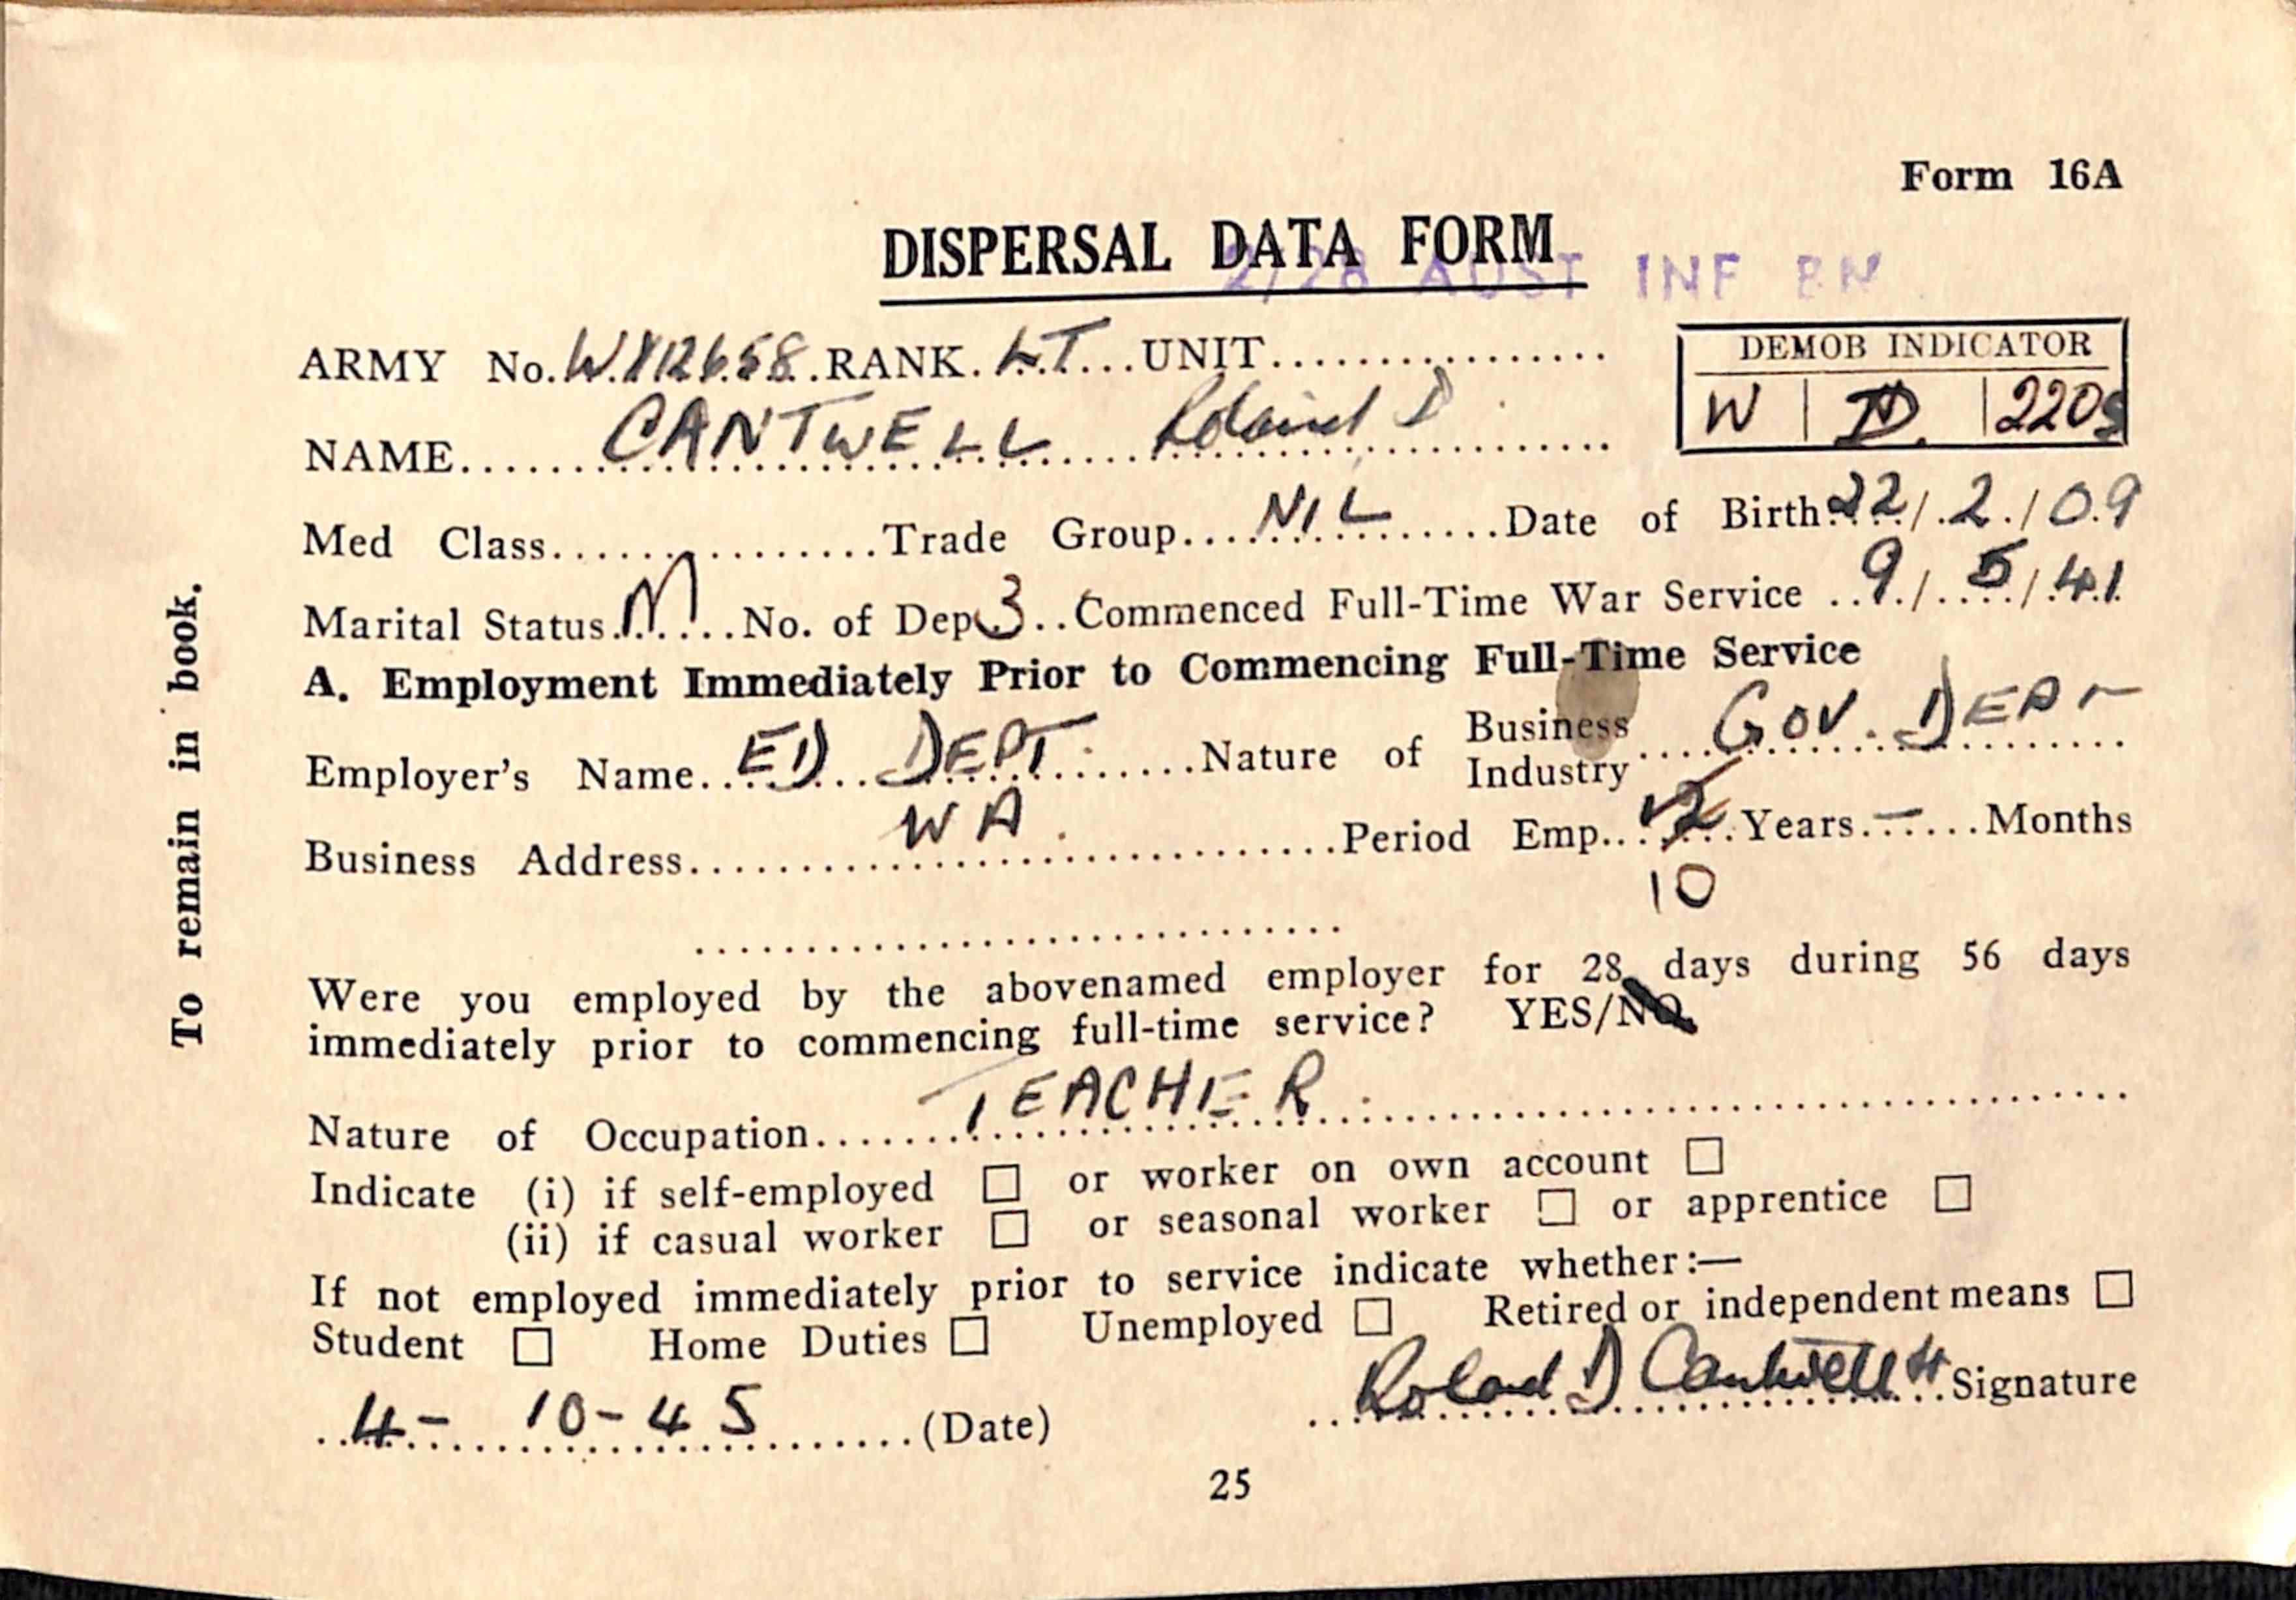 Form 16A
DISPERSAL DATA FORM
2/28 AUST INF BN
ARMY No. WX12658 RANK. LT UNIT
DEMOB INDICATOR
W D. 220
NAME CANTWELL Roland D
Med Class Trade Group NIL Date of Birth 22/2/09
Marital Status M No. of Dep. 3 Commenced Full-Time War Service 9/5/41
A. Employment Immediately Prior to Commencing Full-Time Service
Employer's Name ED DEPT. Nature of Business Industry GOV. DEPT
Business Address WA. Period Emp. 12 Years - Months
10
Were you employed by the abovenamed employer for 28 days during 56 days
immediately prior to commencing full-time service? YES/NO
Nature of Occupation TEACHER
Indicate (i) if self-employed □ or worker on own account □
(ii) if casual worker □ or seasonal worker □ or apprentice □
If not employed immediately prior to service indicate whether:—
Student □ Home Duties □ Unemployed □ Retired or independent means □
4-10-45 (Date) Roland D Cantwell Lt Signature
25
To remain in book.